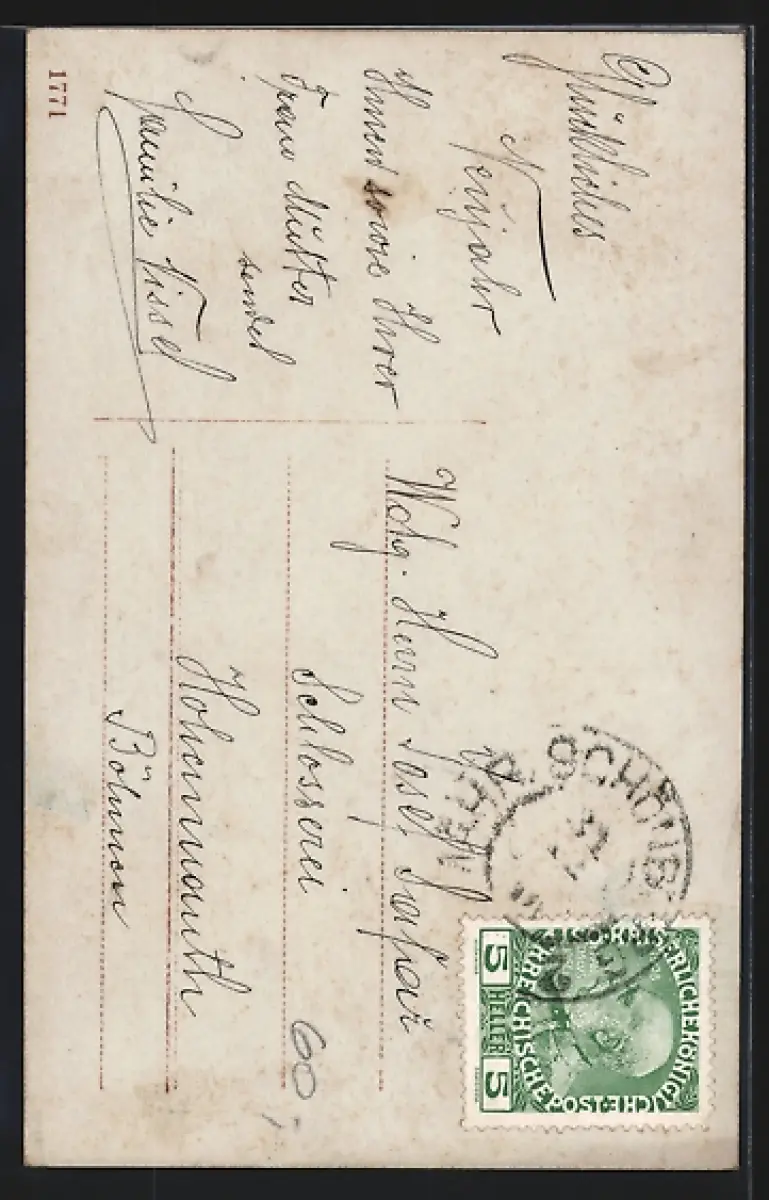 Glückliches
Neujahr
Ihnen sowie Ihrer
Frau Mutter
sendet
Familie Nissel
1771
Wohg. Herrn Josef Šafař
Schlosserei
Hohenmauth
Böhmen
60,-
SCHÖNB
MÄHR
KAISERLICHE KÖNIGLICHE
ÖSTERREICHISCHE POST
5 HELLER 5